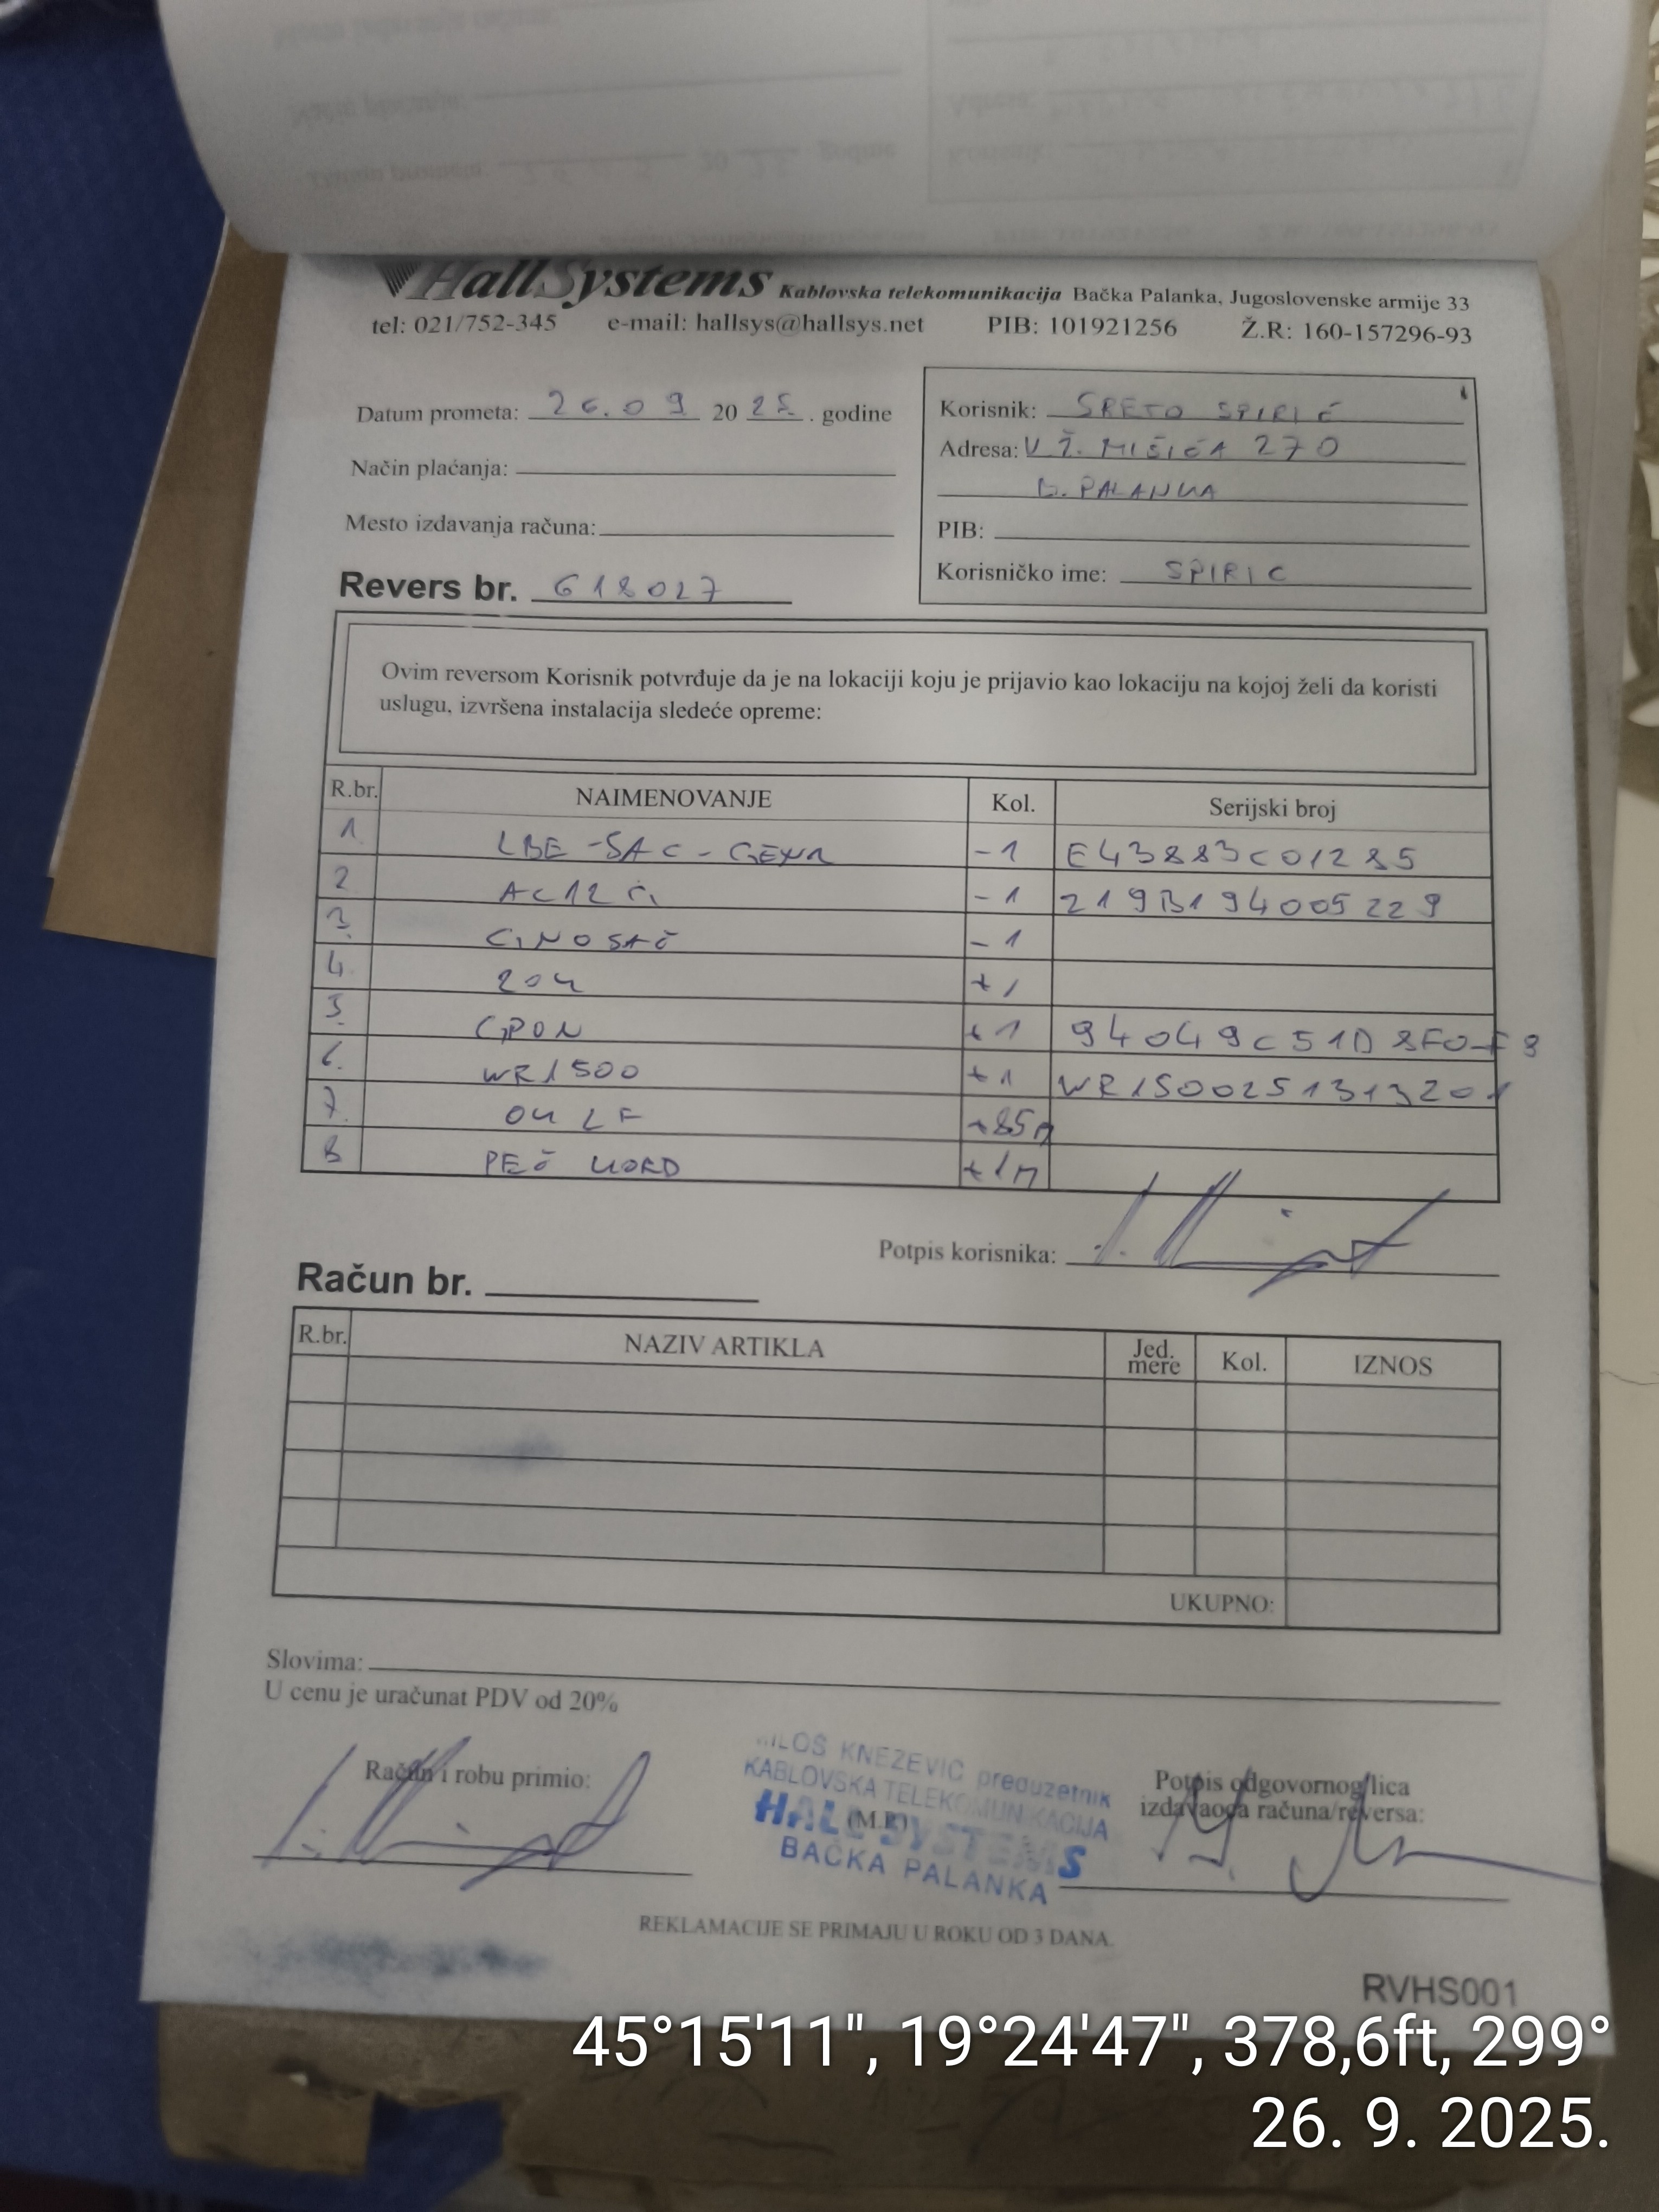 HallSystems Kablovska telekomunikacija Bačka Palanka, Jugoslovenske armije 33
tel: 021/752-345 e-mail: hallsys@hallsys.net PIB: 101921256 Ž.R: 160-157296-93
Datum prometa: 26.09 20 25. godine
Način plaćanja:
Mesto izdavanja računa:
Korisnik: SRETO SPIRIĆ
Adresa: V. Ž. MIŠIĆA 270
B. PALANKA
PIB:
Korisničko ime: SPIRIC
Revers br. 618027
Ovim reversom Korisnik potvrđuje da je na lokaciji koju je prijavio kao lokaciju na kojoj želi da koristi
uslugu, izvršena instalacija sledeće opreme:
R.br. NAIMENOVANJE Kol. Serijski broj
1 LBE-5AC-GEN2 -1 E43883C01285
2 AC12 -1 219B194005229
3. -1
4. ZOK +1
5. GPON +1 94049C51D8F0
6. WR1500 +1 WR1500251313201
7. OK LF +85M
8 PEČ KORD +1M
Potpis korisnika:
Račun br.
R.br. NAZIV ARTIKLA Jed. mere Kol. IZNOS
UKUPNO:
Slovima:
U cenu je uračunat PDV od 20%
Račun i robu primio:
MILOS KNEZEVIC preduzetnik
KABLOVSKA TELEKOMUNIKACIJA
(M.P.)
HALL SYSTEMS
BAČKA PALANKA
Potpis odgovornog lica
izdavaoca računa/reversa:
REKLAMACIJE SE PRIMAJU U ROKU OD 3 DANA.
RVHS001
45°15'11", 19°24'47", 378,6ft, 299°
26. 9. 2025.